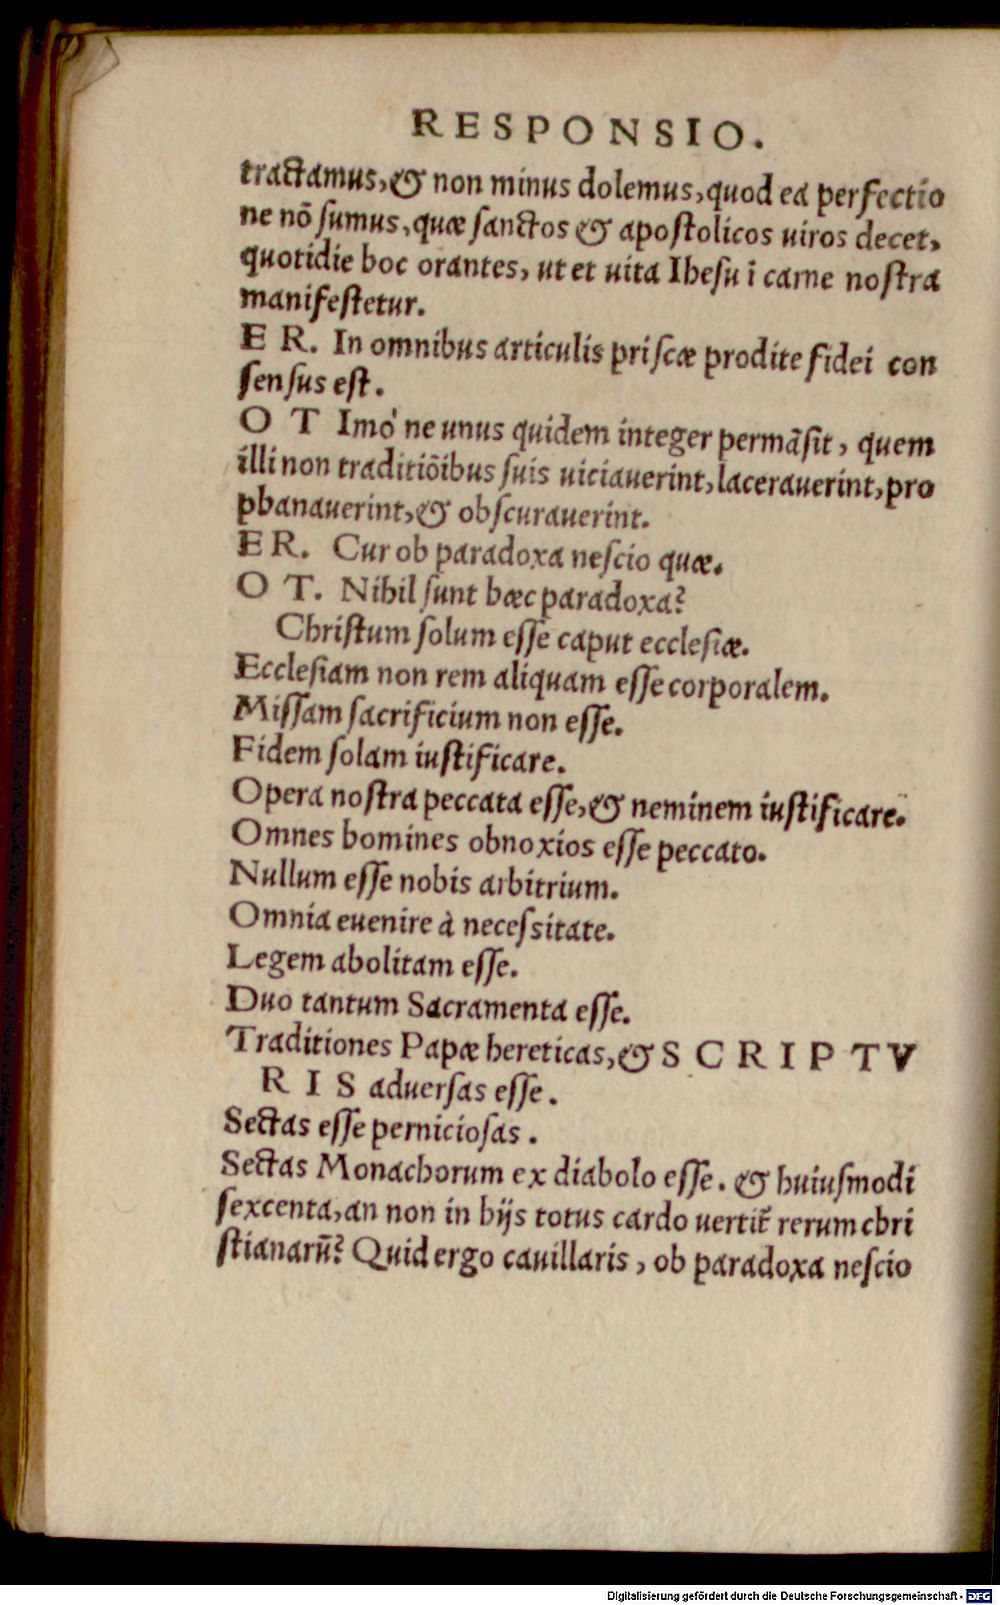 RESPONSIO.
tractamus, & non minus dolemus, quod ea perfectio
ne nō sumus, quæ sanctos & apostolicos uiros decet,
quotidie hoc orantes, ut et uita Ihesu ī carne nostra
manifestetur.
E R. In omnibus articulis priscæ prodite fidei con
sensus est.
O T Imò ne unus quidem integer permāsit, quem
illi non traditiōibus suis uiciauerint, lacerauerint, pro
phanauerint, & obscurauerint.
E R. Cur ob paradoxa nescio quæ.
O T. Nihil sunt hæc paradoxa?
Christum solum esse caput ecclesiæ.
Ecclesiam non rem aliquam esse corporalem.
Missam sacrificium non esse.
Fidem solam iustificare.
Opera nostra peccata esse, & neminem iustificare.
Omnes homines obnoxios esse peccato.
Nullum esse nobis arbitrium.
Omnia euenire à necessitate.
Legem abolitam esse.
Duo tantum Sacramenta esse.
Traditiones Papæ hereticas, & S C R I P T V
R I S aduersas esse.
Sectas esse perniciosas.
Sectas Monachorum ex diabolo esse. & huiusmodi
sexcenta, an non in hijs totus cardo uertit̃ rerum chri
stianarū? Quid ergo cauillaris, ob paradoxa nescio
Digitalisierung gefördert durch die Deutsche Forschungsgemeinschaft - DFG